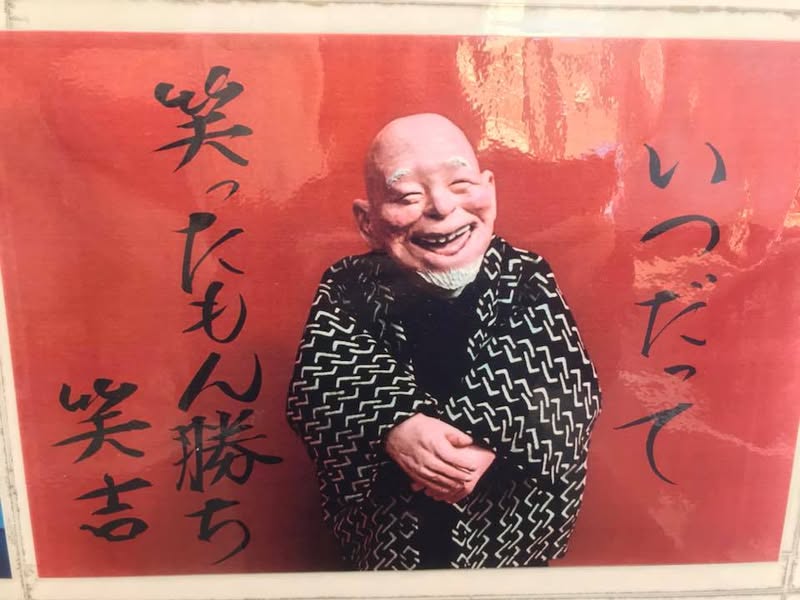 いつだって
笑ったもん勝ち
笑吉